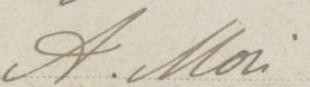 A. Mori